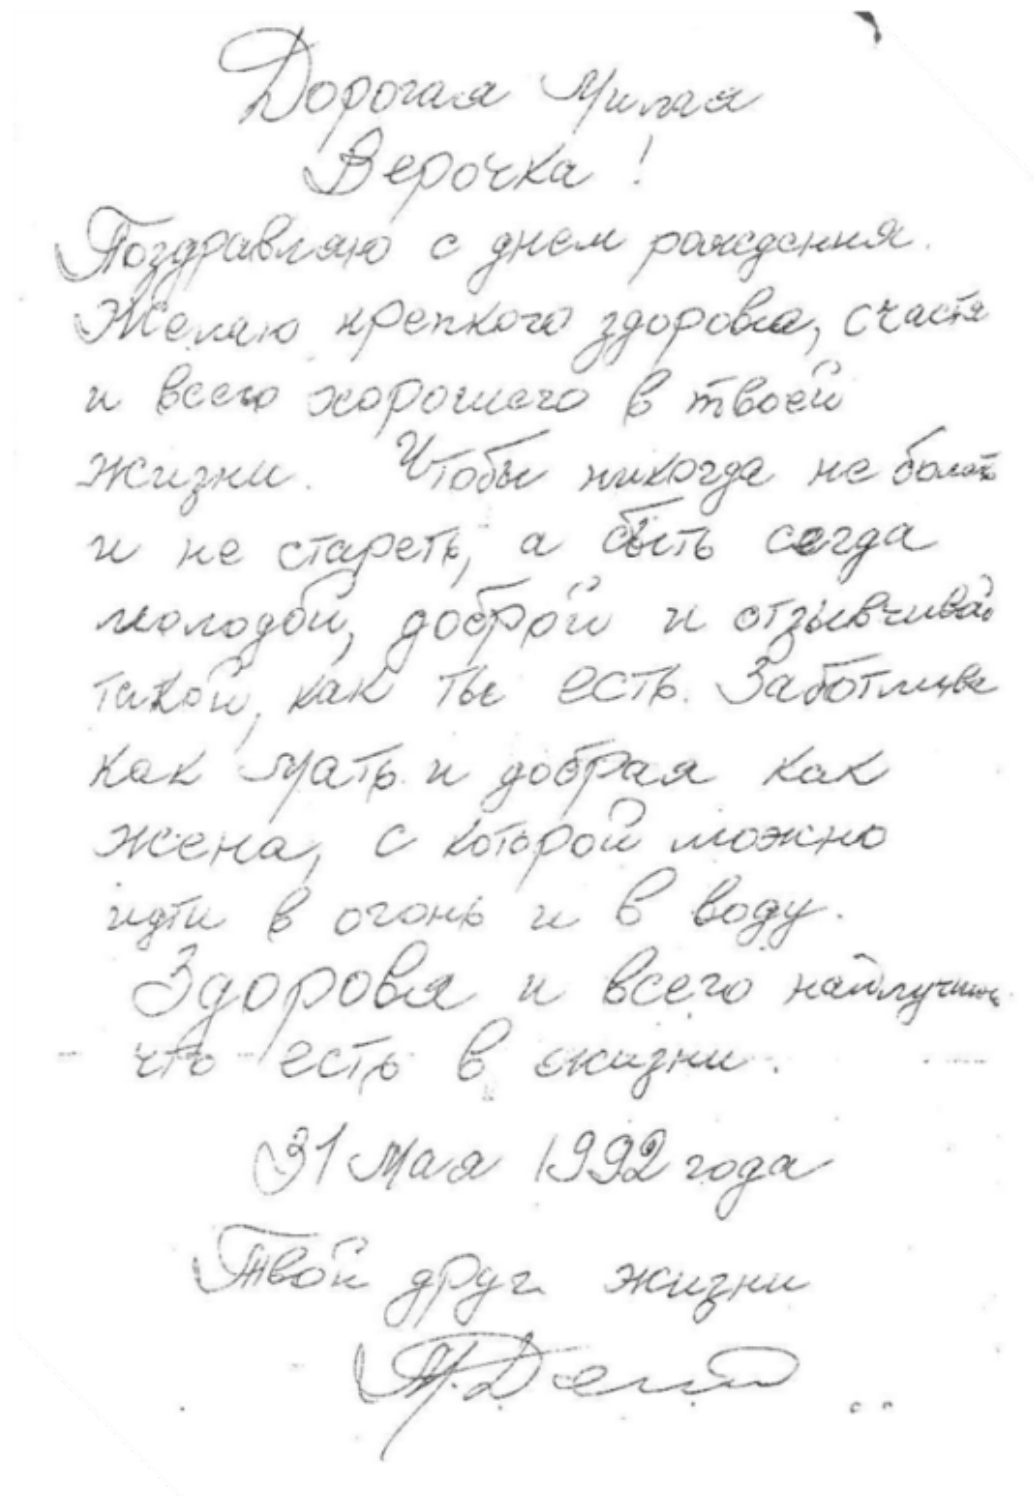 Дорогая Милая
Верочка!
Поздравляю с днем рождения.
Желаю крепкого здоровья, счастя
и всего хорошего в твоей
жизни. Чтобы никогда не болеть
и не стареть, а быть всегда
молодой, доброй и отзывчивой
такой, как ты есть. Заботлива
как мать и добрая как
жена, с которой можно
идти в огонь и в воду.
Здоровя и всего
что есть в жизни.
31 Мая 1992 года
Твой друг жизни